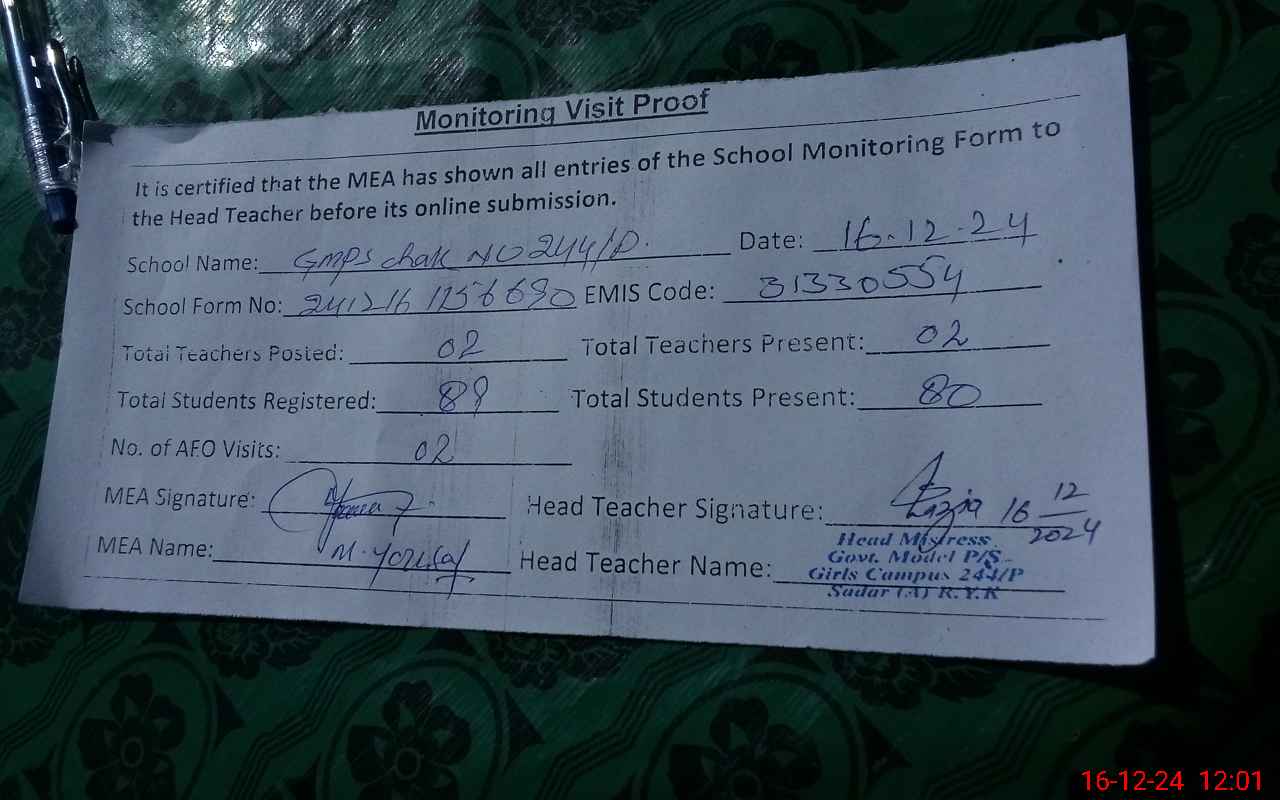 Monitoring Visit Proof
It is certified that the MEA has shown all entries of the School Monitoring Form to
the Head Teacher before its online submission.
School Name: GMPS Chak NO 244/P. Date: 16.12.24
School Form No: 241216 1156690 EMIS Code: 31330554
Total Teachers Posted: 02 Total Teachers Present: 02
Total Students Registered: 89 Total Students Present: 80
No. of AEO Visits: 02
MEA Signature: Head Teacher Signature: Razia 16 12/2024
MEA Name: M. Yousaf Head Teacher Name:
Head Mistress
Govt. Model P/S
Girls Campus 244/P
Sadar (A) R.Y.K
16-12-24 12:01